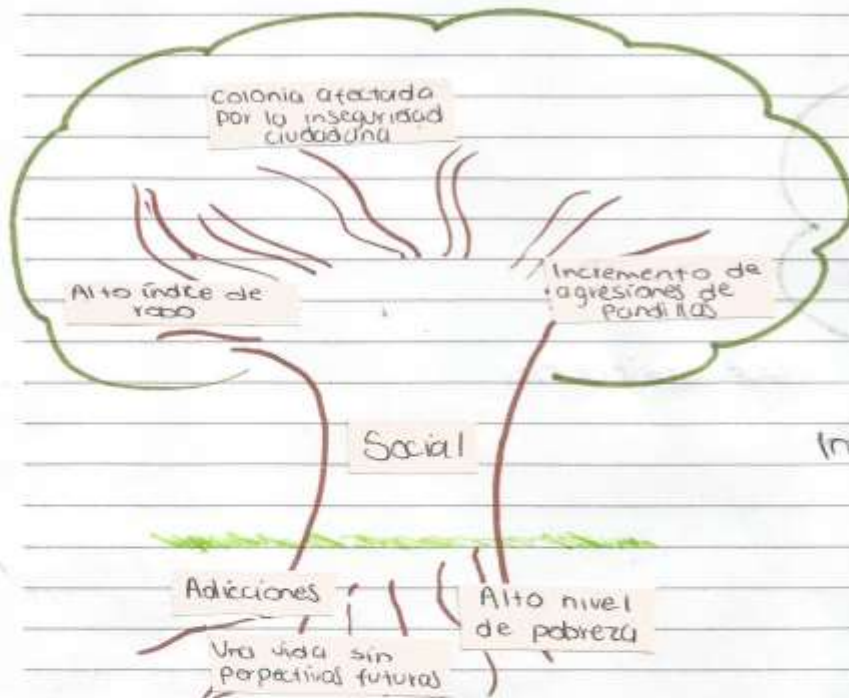 Colonia afectada
por la inseguridad
ciudadana
Alto índice de
robo
Incremento de
agresiones de
pandillas
Social
In
Adicciones
Alto nivel
de pobreza
Una vida sin
perpectivas futuras